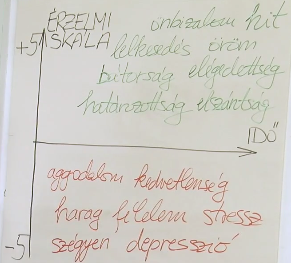 ÉRZELMI önbizalom hit
+5 SKÁLA lelkesedés öröm
bátorság elégedettség
határozottság elszántság
IDŐ
aggodalom kedvetlenség
harag félelem stressz
-5 szégyen depresszió